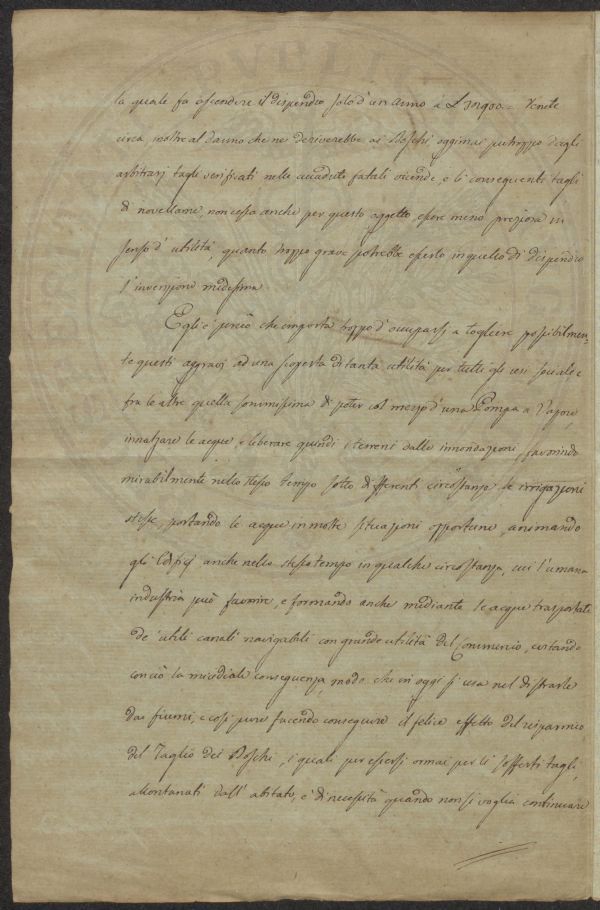 la quale fa ascendere il dispendio solo d'un anno a L Venete
circa, inoltre al danno che ne deriverebbe ai Boschi oggimai purtroppo dagli
arbitrarj tagli verificati nelle accadute fatali vicende, e li conseguenti tagli
di novellame non cessa anche per questo oggetto essere meno preziosa in
senso d'utilità, quanto troppo grave potrebbe esserlo in quello di dispendio
l'invenzione medesima
Egli è perciò che importa troppo d'occuparsi a togliere possibilmen-
te questi aggravj ad una scoperta di tanta utilità per tutti gli usi sociali e
fra le altre quella sommissima di poter col mezzo d'una Pompa a Vapore,
innalzare le acque e liberare quindi i terreni dalle innondazioni, favorindo
mirabilmente nello stesso tempo sotto differenti circostanze le irrigazioni
stesse, portando le acque in molte situazioni opportune, animando
gli Edifizj anche nello stesso tempo in qualche circostanza, cui l'umana
industria può favorire, e formando anche mediante le acque trasportate
de' utili canali navigabili con grande utilità del Commercio, evitando
con ciò la micidiale conseguenza, modo che in oggi si usa nel distrarle
dai fiumi, e così pure facendo conseguire il felice effetto del risparmio
del Taglio dei Boschi, i quali per essersi ormai per li sofferti tagli,
allontanati dall'abitato, è di necessità quando non si voglia continuare